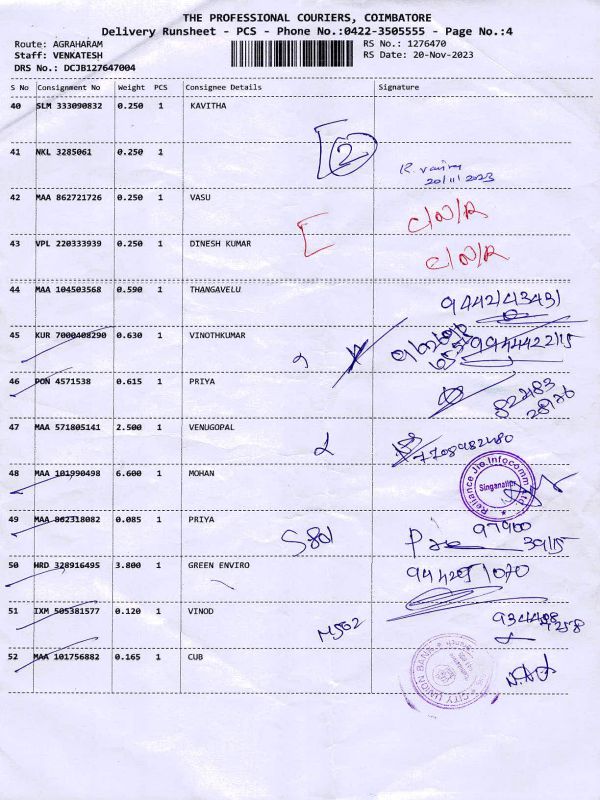 THE PROFESSIONAL COURIERS, COIMBATORE
Delivery Runsheet - PCS - Phone No.:0422-3505555 - Page No.:4
Route: AGRAHARAM
RS No.: 1276470
Staff: VENKATESH
RS Date: 20-Nov-2023
DRS No.: DCJB127647004
S No Consignment No Weight PCS Consignee Details Signature
40 SLM 333090832 0.250 1 KAVITHA
2
41 NKL 3285061 0.250 1
20/11/2023
42 MAA 862721726 0.250 1 VASU C/N/R
43 VPL 220333939 0.250 1 DINESH KUMAR C/N/R
44 MAA 104503568 0.590 1 THANGAVELU
45 KUR 7000408290 0.630 1 VINOTHKUMAR
46 PON 4571538 0.615 1 PRIYA
47 MAA 571805141 2.500 1 VENUGOPAL
7708982480
48 MAA 101990498 6.600 1 MOHAN
Reliance Jio Infocomm Ltd.
Singanallur
49 MAA 862318082 0.085 1 PRIYA
50 HRD 328916495 3.800 1 GREEN ENVIRO
51 IXM 505381577 0.120 1 VINOD
52 MAA 101756882 0.165 1 CUB
CITY UNION BANK